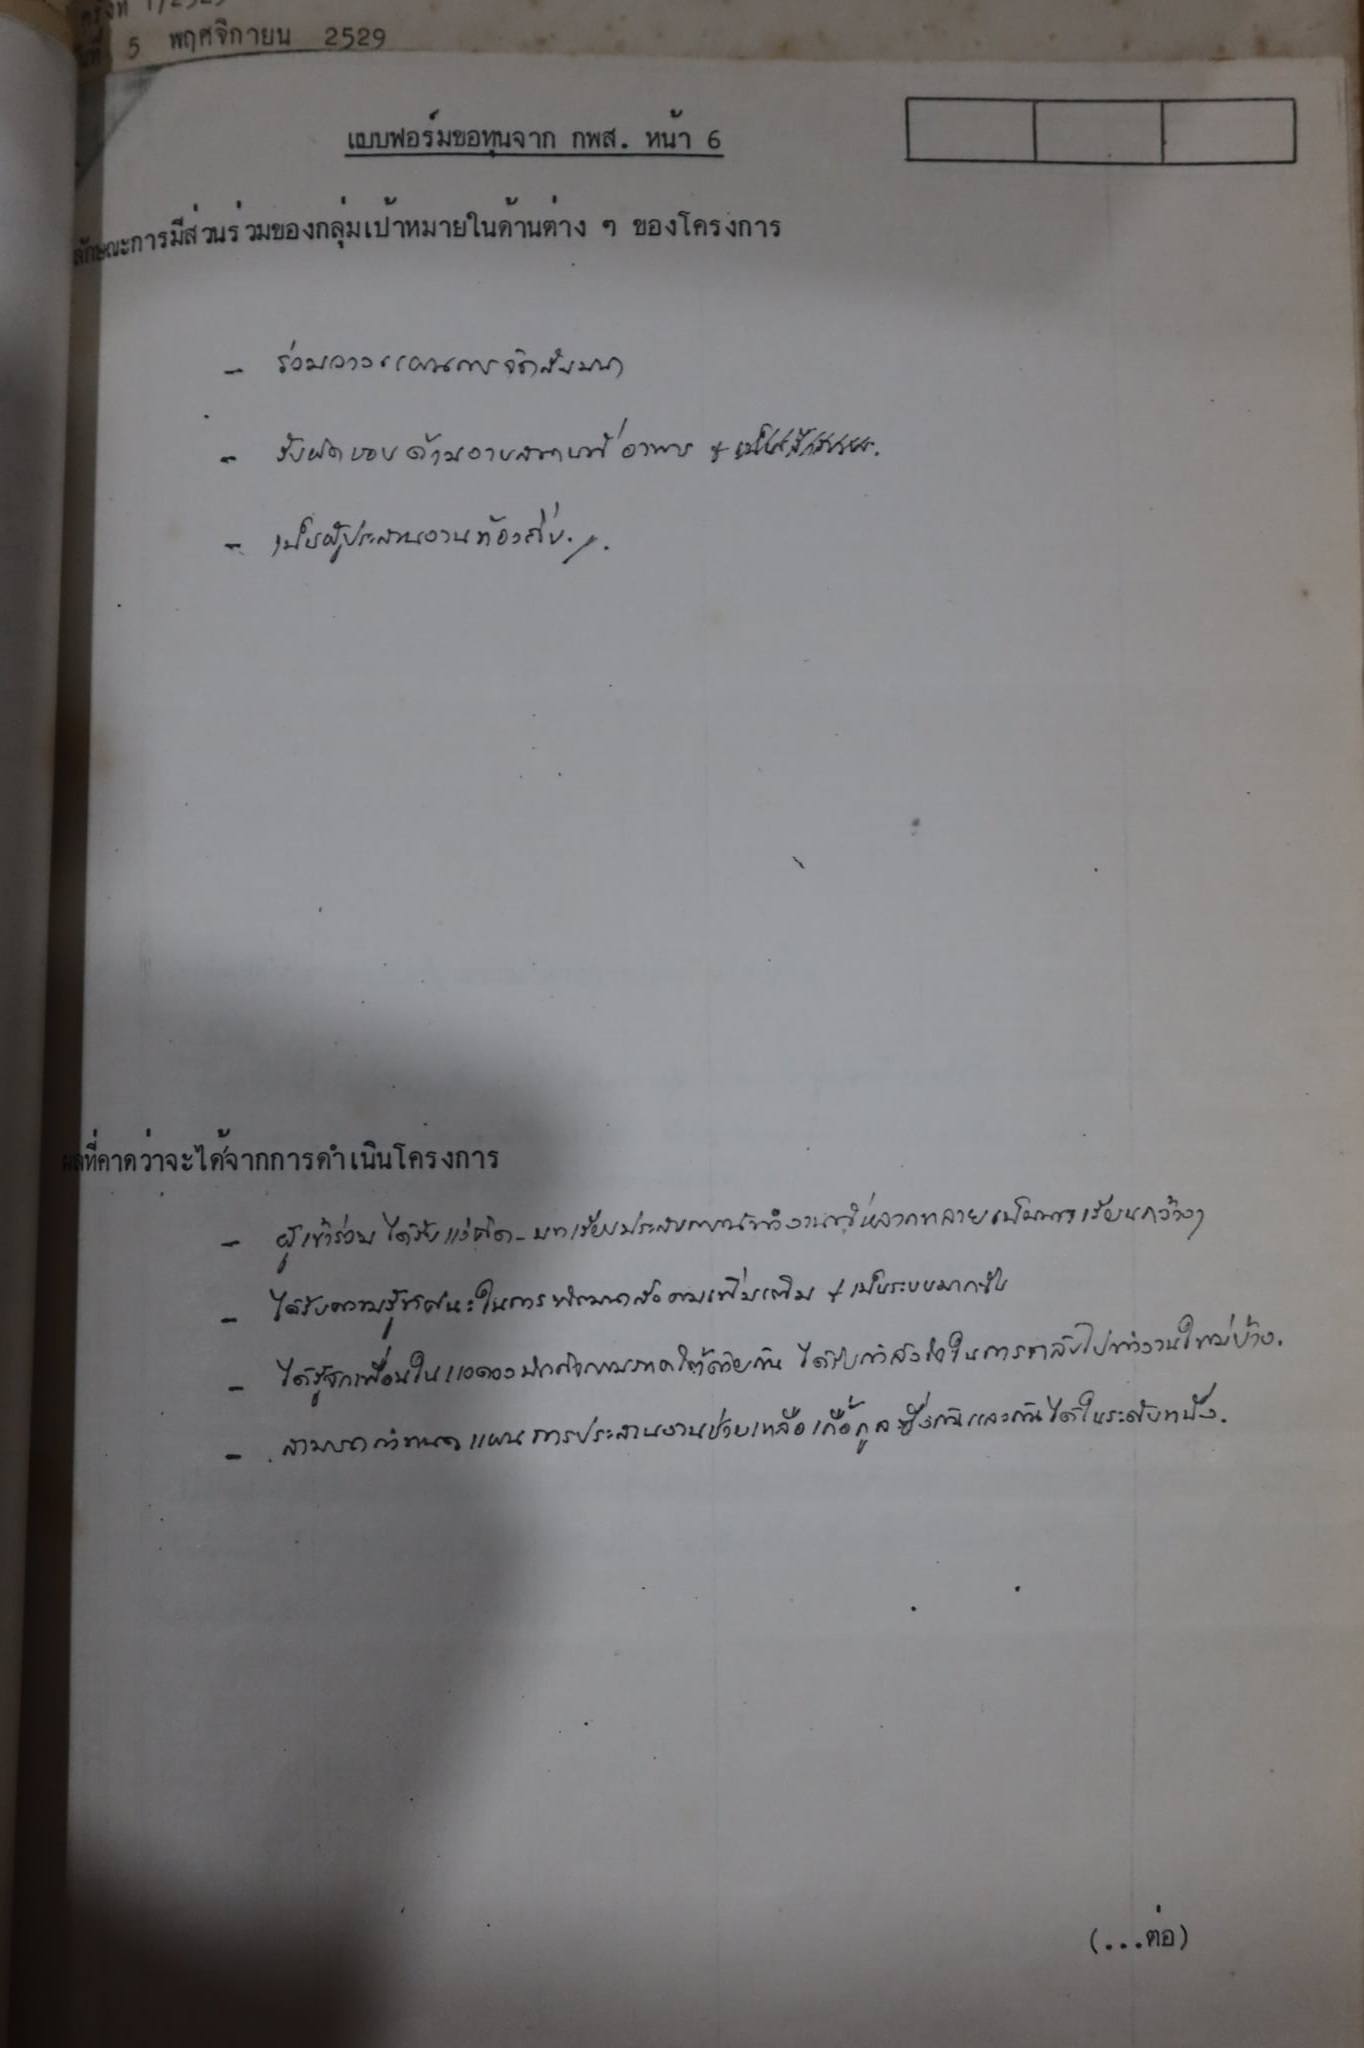 ครั้งที่ 1/2529
วันที่ 5 พฤศจิกายน 2529
แบบฟอร์มขอทุนจาก กพส. หน้า 6
ลักษณะการมีส่วนร่วมของกลุ่มเป้าหมายในด้านต่าง ๆ ของโครงการ
- ร่วมวางแผนการจัดสัมมนา
- รับผิดชอบด้านงานสถานที่ อาหาร +
- เป็นผู้ประสานงานท้องถิ่น.
ผลที่คาดว่าจะได้จากการดำเนินโครงการ
- ผู้เข้าร่วมได้รับแง่คิด - บทเรียนประสบการณ์ทำงานที่หลากหลายเป็นการเรียนกว้างๆ
- ได้รับความรู้ทัศนะในการพัฒนาสังคมเพิ่มเติม + เป็นระบบมากขึ้น
- ได้รู้จักเพื่อนในแวดวงนักกิจกรรมภาคใต้ด้วยกัน ได้รับกำลังใจในการกลับไปทำงานใหม่บ้าง.
- สามารถกำหนดแผนการประสานงานช่วยเหลือเกื้อกูลซึ่งกันและกันได้ในระดับหนึ่ง.
(...ต่อ)